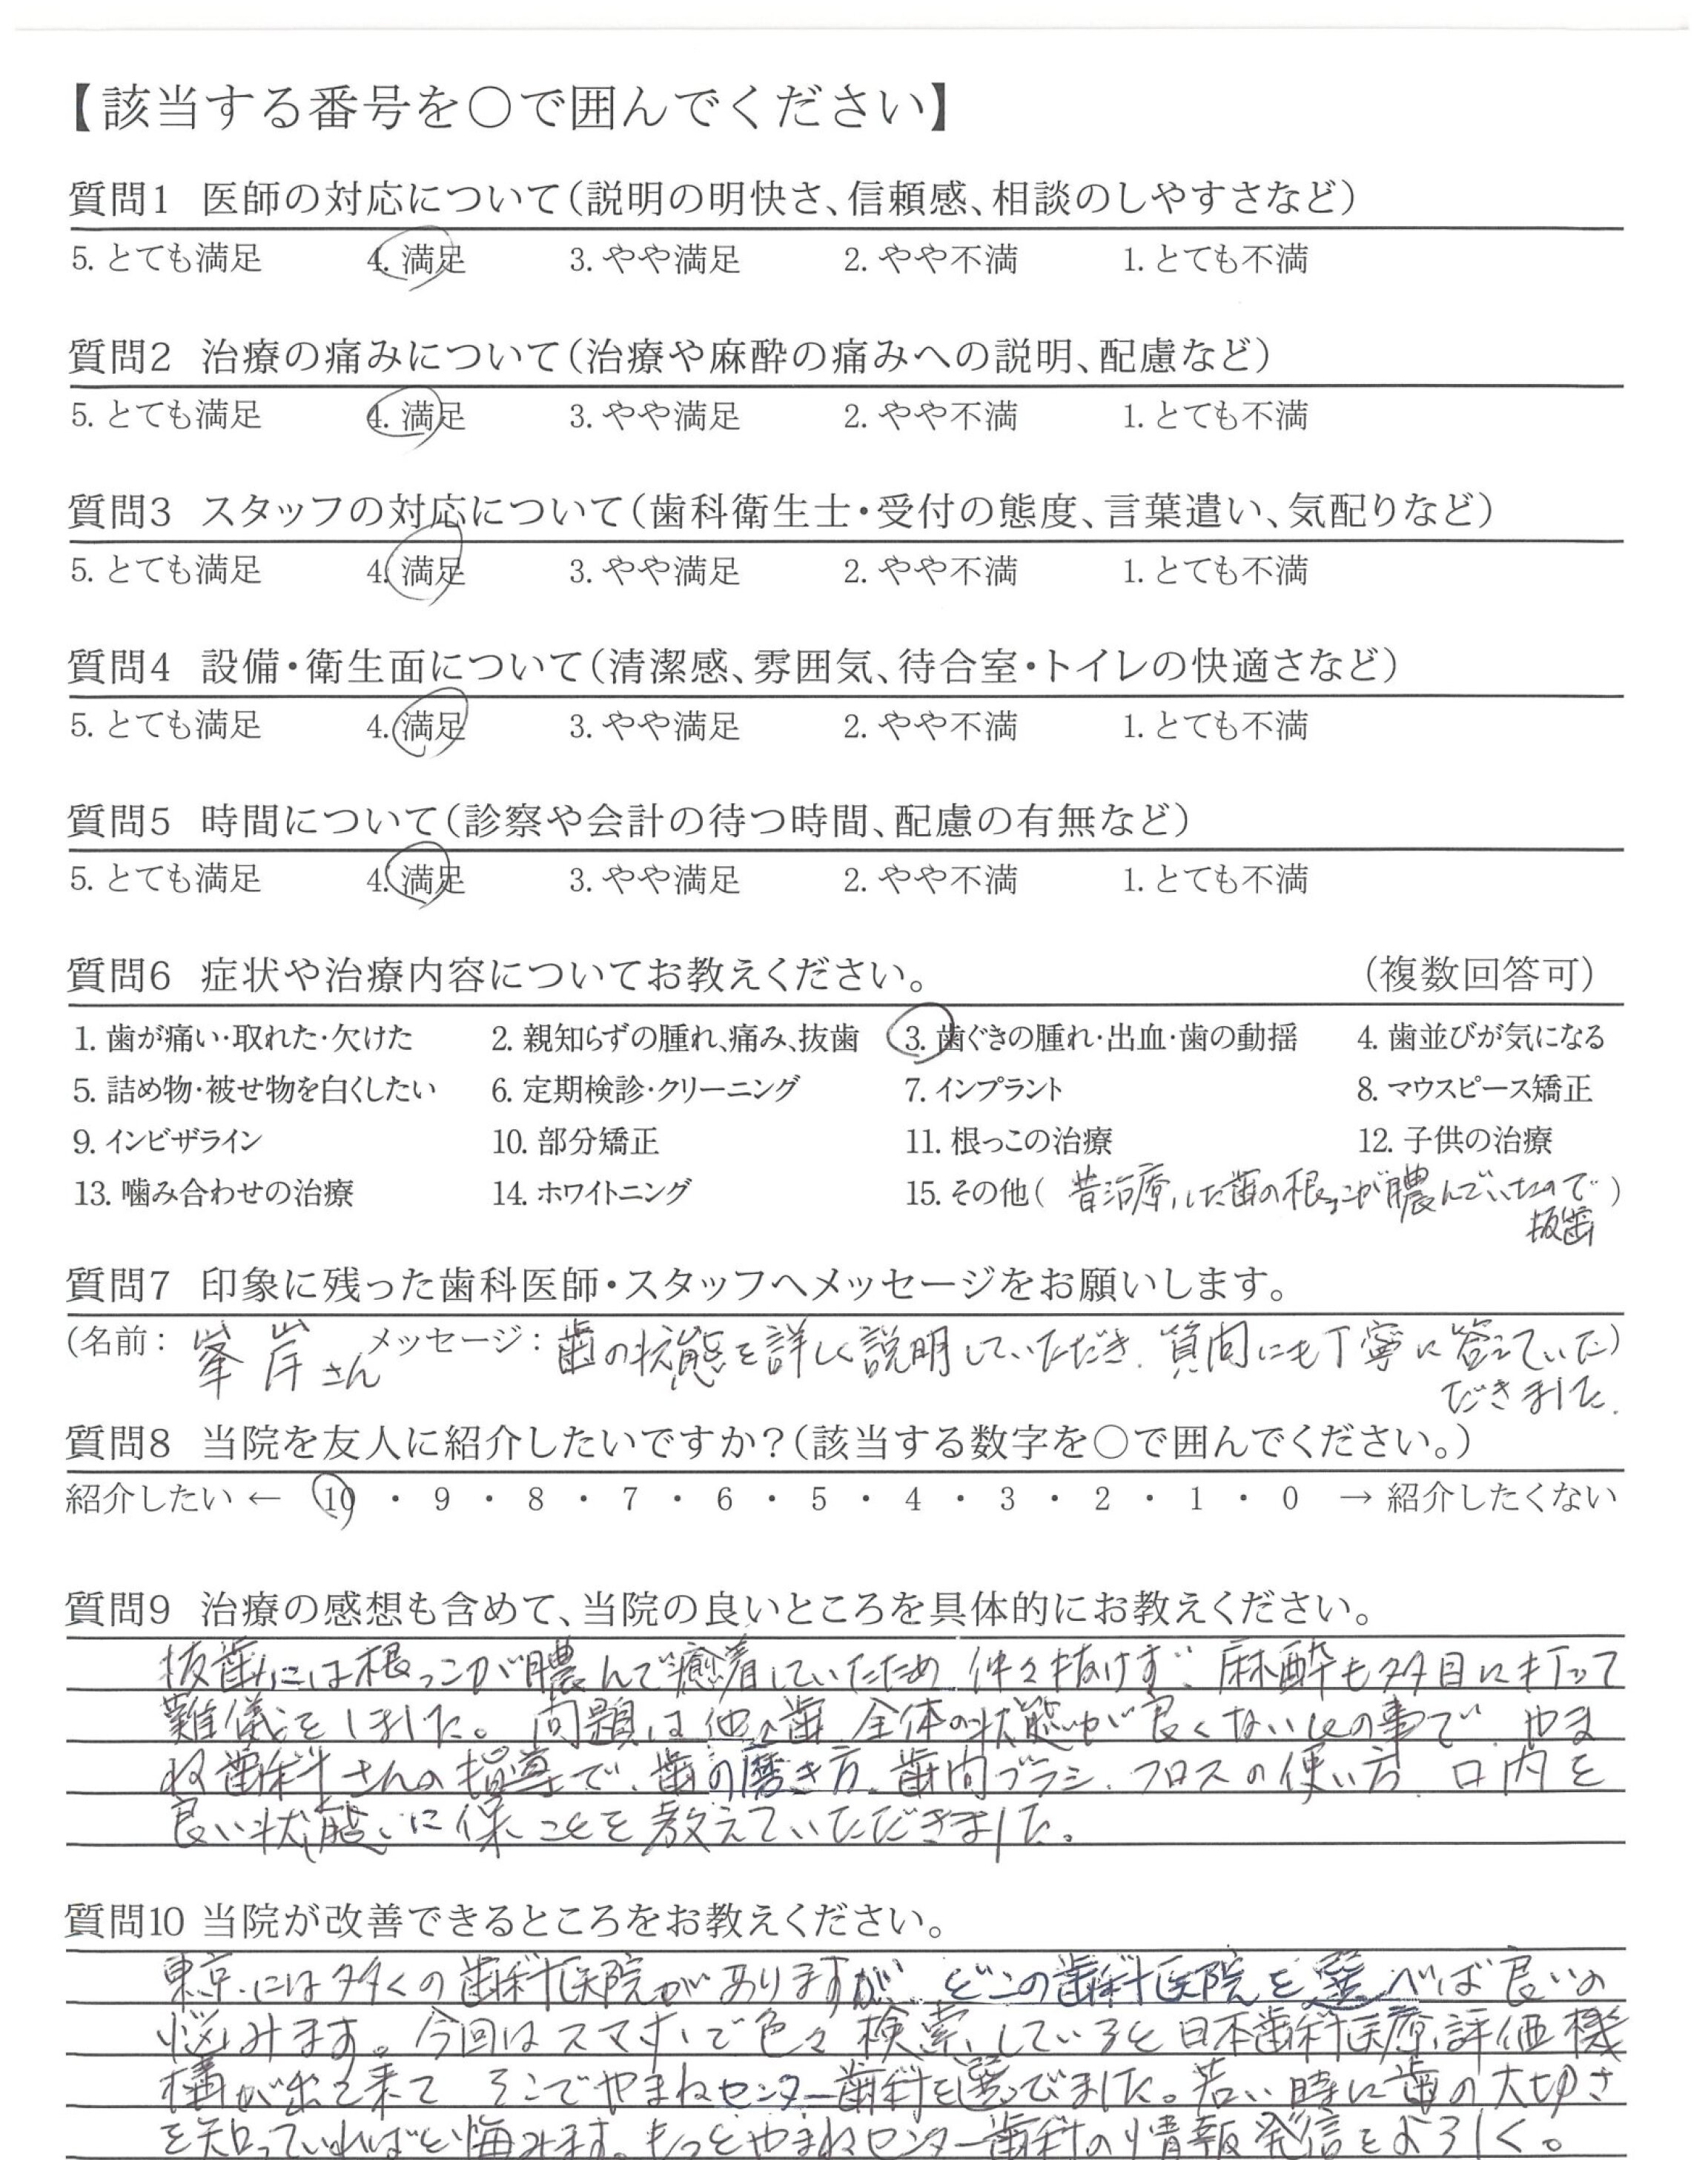 【該当する番号を○で囲んでください】
質問1 医師の対応について(説明の明快さ、信頼感、相談のしやすさなど)
5. とても満足 4. 満足 3. やや満足 2. やや不満 1. とても不満
質問2 治療の痛みについて(治療や麻酔の痛みへの説明、配慮など)
5. とても満足 4. 満足 3. やや満足 2. やや不満 1. とても不満
質問3 スタッフの対応について(歯科衛生士・受付の態度、言葉遣い、気配りなど)
5. とても満足 4. 満足 3. やや満足 2. やや不満 1. とても不満
質問4 設備・衛生面について(清潔感、雰囲気、待合室・トイレの快適さなど)
5. とても満足 4. 満足 3. やや満足 2. やや不満 1. とても不満
質問5 時間について(診察や会計の待つ時間、配慮の有無など)
5. とても満足 4. 満足 3. やや満足 2. やや不満 1. とても不満
質問6 症状や治療内容についてお教えください。 (複数回答可)
1. 歯が痛い・取れた・欠けた 2. 親知らずの腫れ、痛み、抜歯 3. 歯ぐきの腫れ・出血・歯の動揺 4. 歯並びが気になる
5. 詰め物・被せ物を白くしたい 6. 定期検診・クリーニング 7. インプラント 8. マウスピース矯正
9. インビザライン 10. 部分矯正 11. 根っこの治療 12. 子供の治療
13. 噛み合わせの治療 14. ホワイトニング 15. その他( 昔治療した歯の根っこが膿んでいたので )
抜歯
質問7 印象に残った歯科医師・スタッフへメッセージをお願いします。
(名前: 峯岸さん メッセージ: 歯の状態を詳しく説明していただき、質問にも丁寧に答えていた)
だきました。
質問8 当院を友人に紹介したいですか?(該当する数字を○で囲んでください。)
紹介したい ← 10 ・ 9 ・ 8 ・ 7 ・ 6 ・ 5 ・ 4 ・ 3 ・ 2 ・ 1 ・ 0 → 紹介したくない
質問9 治療の感想も含めて、当院の良いところを具体的にお教えください。
抜歯には根っこが膿んで癒着していたため 仲々抜けず、麻酔も多目に打って
難儀をしました。問題は他の歯 全体の状態が良くないとの事で、やま
ね歯科さんの指導で、歯の磨き方、歯間ブラシ、フロスの使い方、口内を
良い状態に保つことを教えていただきました。
質問10 当院が改善できるところをお教えください。
東京には多くの歯科医院がありますが、どこの歯科医院を選べば良いの
悩みます。今回はスマホで色々検索していると日本歯科医療評価機
構が出て来て そこでやまねセンター歯科を選びました。若い時に歯の大切さ
を知っていればと悔みます。もっとやまねセンター歯科の情報発信をよろしく。